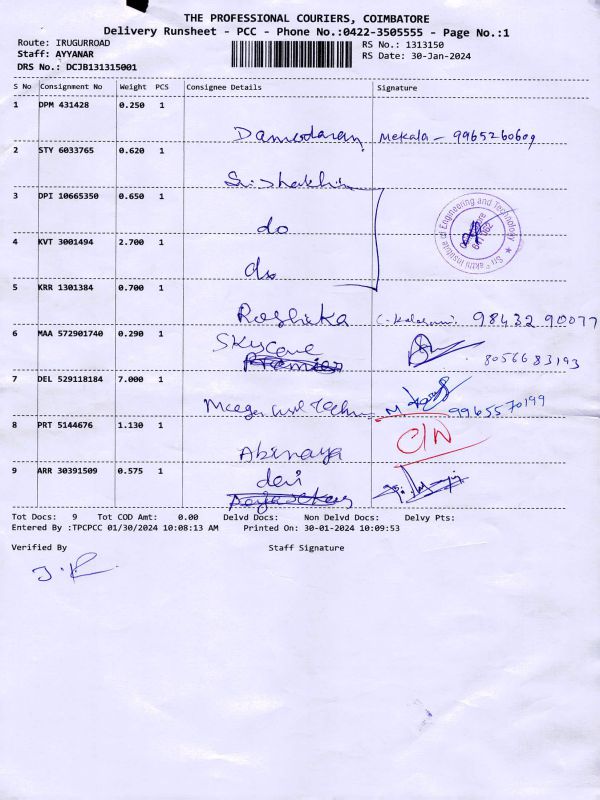 THE PROFESSIONAL COURIERS, COIMBATORE
Delivery Runsheet - PCC - Phone No.:0422-3505555 - Page No.:1
Route: IRUGURROAD
RS No.: 1313150
Staff: AYYANAR
RS Date: 30-Jan-2024
DRS No.: DCJB131315001
S No Consignment No Weight PCS Consignee Details Signature
1 DPM 431428 0.250 1
Damodaran Mekala - 9965260609
2 STY 6033765 0.620 1
3 DPI 10665350 0.650 1
do
Sri Shakthi Institute of Engineering and Technology
4 KVT 3001494 2.700 1
do
5 KRR 1301384 0.700 1
Roshika 98432 90077
6 MAA 572901740 0.290 1
Skycave
Premier 8056683193
7 DEL 529118184 7.000 1
9965570199
8 PRT 5144676 1.130 1
Abinaya C/N
9 ARR 30391509 0.575 1
devi
Tot Docs: 9 Tot COD Amt: 0.00 Delvd Docs: Non Delvd Docs: Delvy Pts:
Entered By :TPCPCC 01/30/2024 10:08:13 AM Printed On: 30-01-2024 10:09:53
Verified By Staff Signature